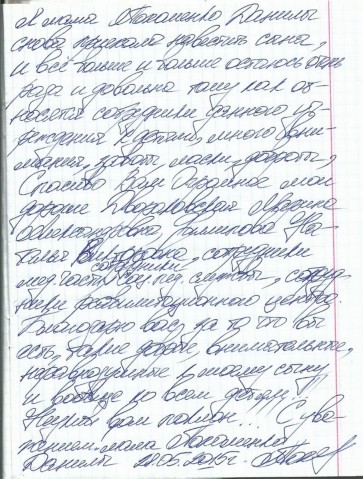 Я мама Пахоменко Данилы
снова приехала навестить сына,
и всё больше и больше осталась очень
рада и довольна тому как от-
носятся сотрудники данного уч-
реждения к детям, много вни-
мания, заботы, ласки, доброты,
Спасибо Вам Огромное мои
дорогие
Александровна, На-
талья Викторовна, сотрудники
мед. части, сотрудники соц. пед. службы, сотруд-
ники реабилитационного центра.
Благодарю вас, за то что вы
есть, такие добрые, внимательные,
неравнодушные к моему сыну
и вообще ко всем детям!!!
вам поклон!!! С ува-
жением мама Пахоменко
Данилы 28.05.2015г.